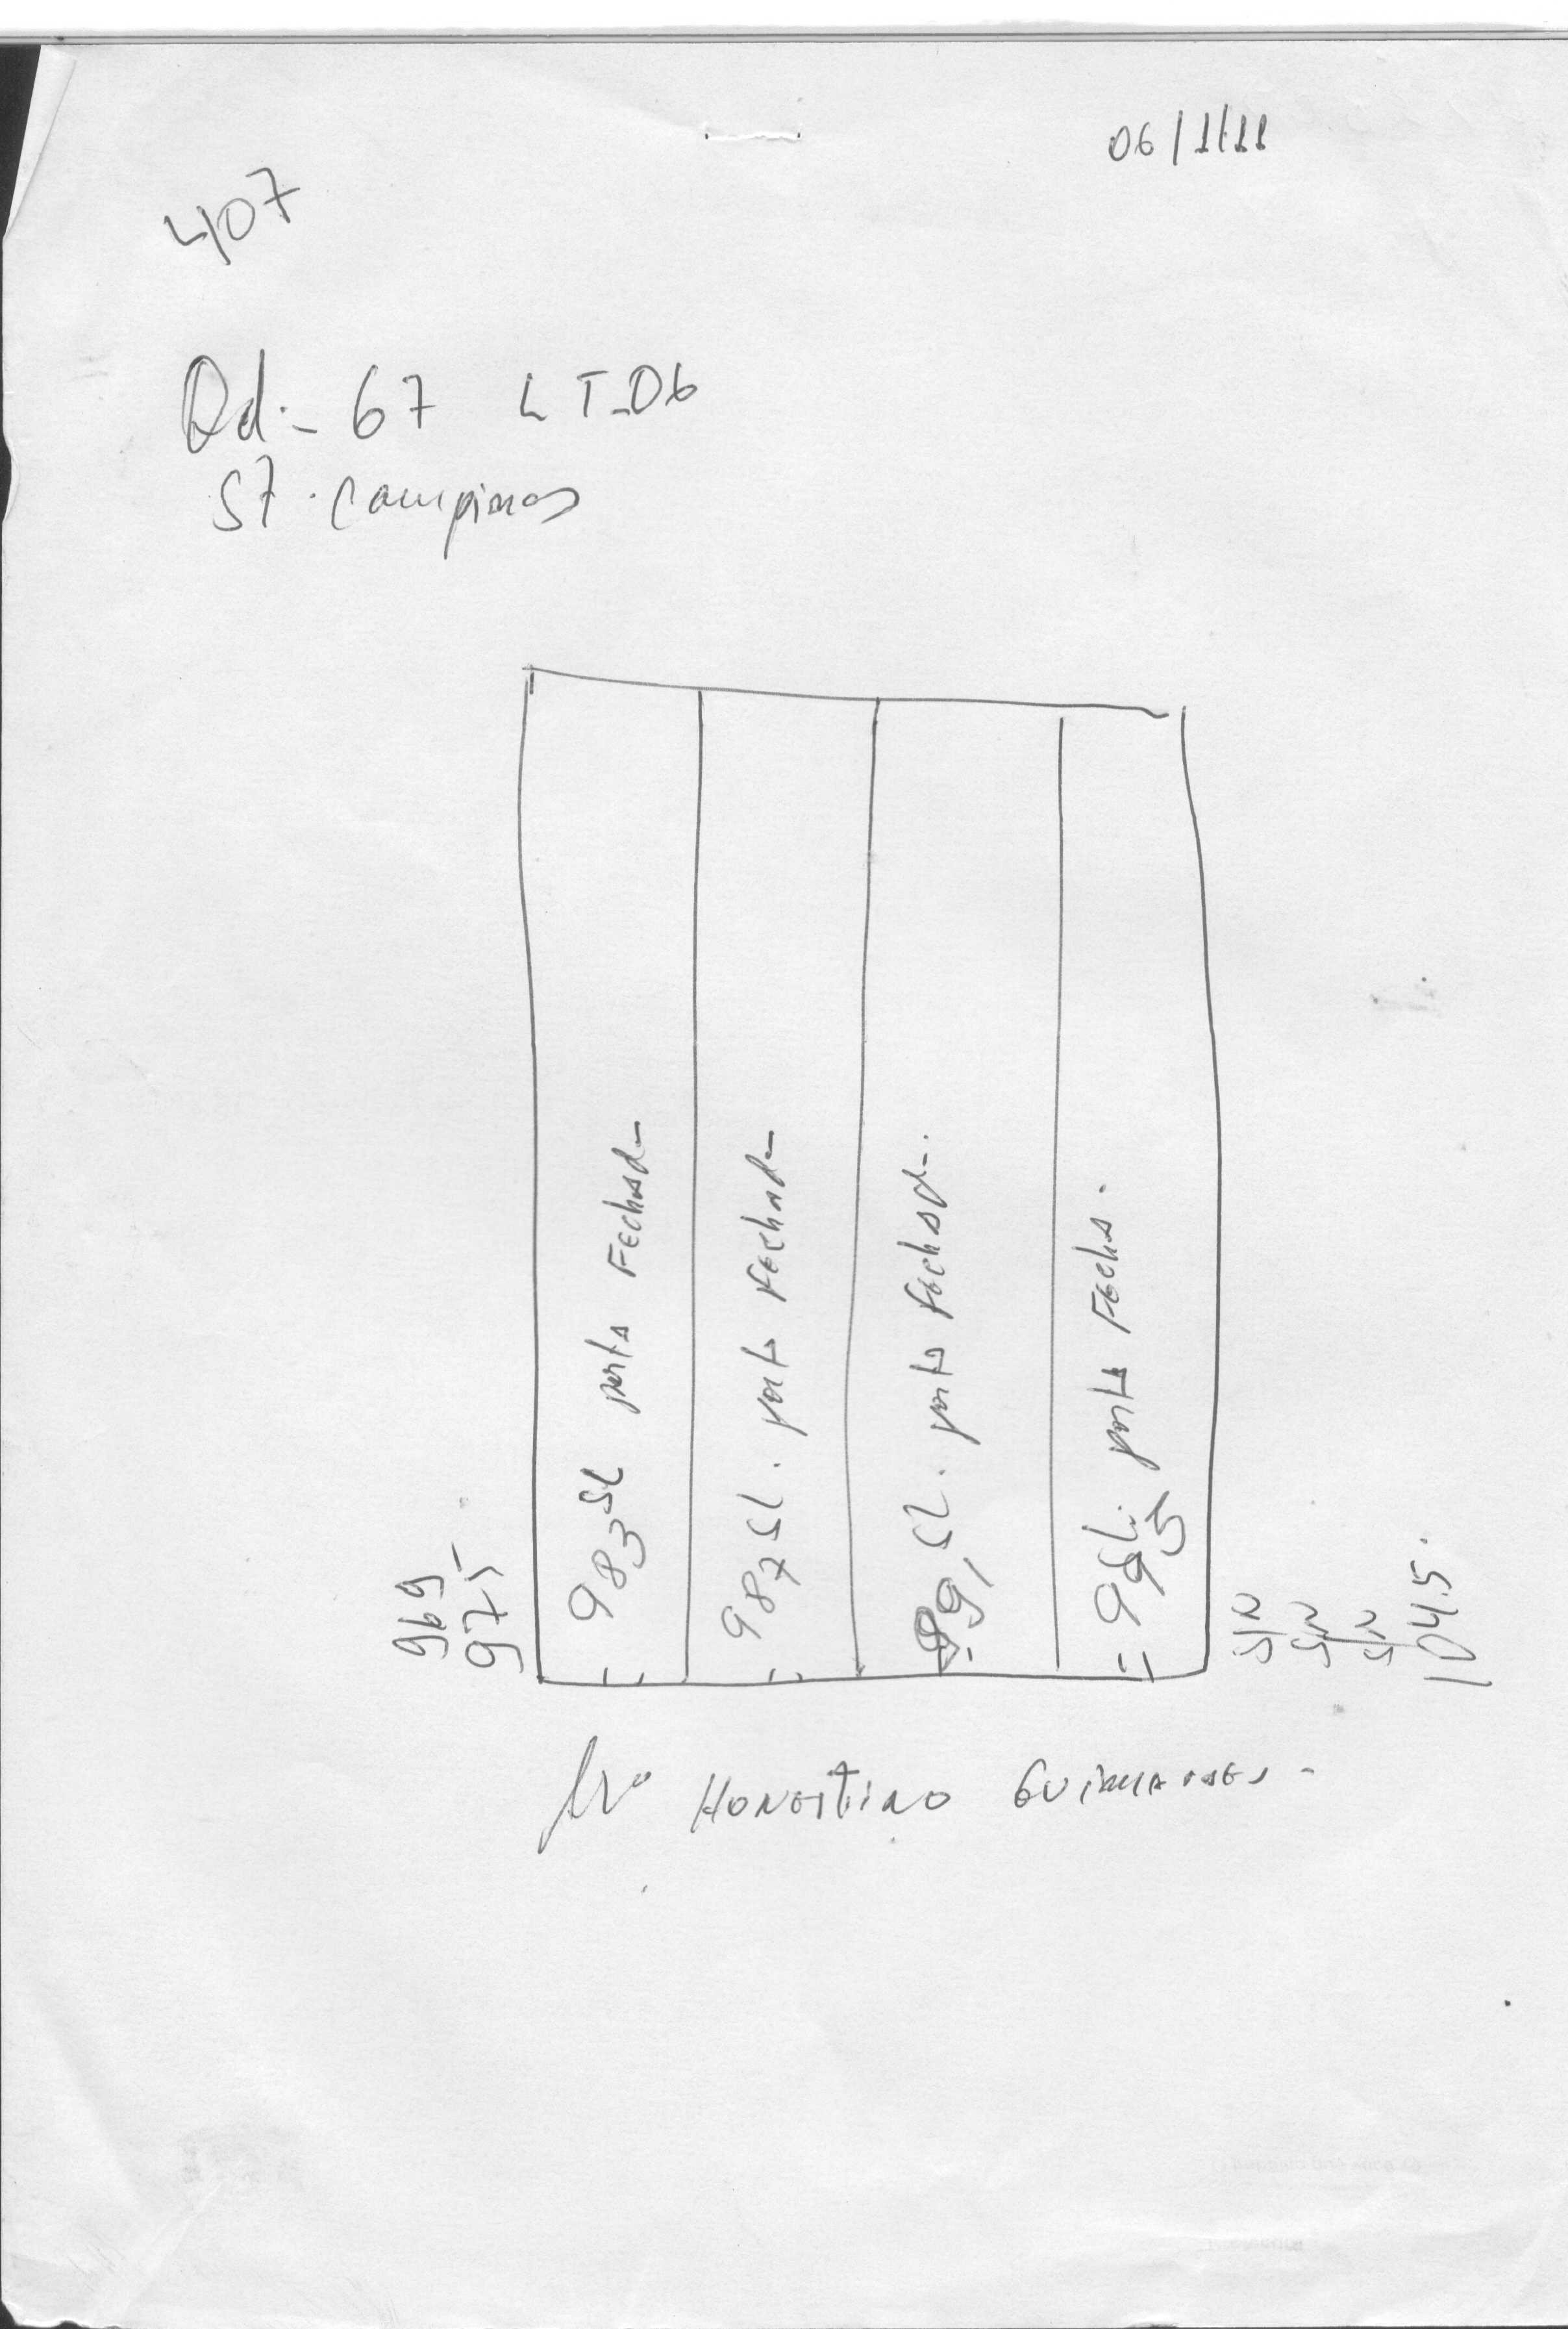 06/1/11
407
Qd:- 67 LT-06
ST. Campinas
969
975
983 SL porta Fechad-
987 SL. porta Fechad-
991 SL. porta fechad-.
995 SL. porta Fecha.
S/N
S/N
S/N
1045.
HONESTINO GUIMARAES -